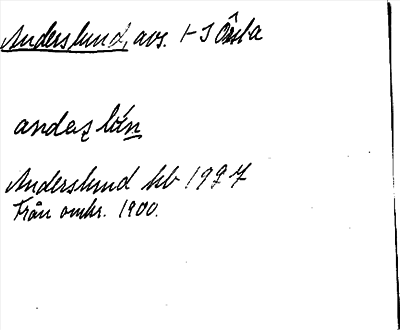 Anderslund, avs. t J Örsta
andașlòn
Anderslund kb 1927
Från omkr. 1900.